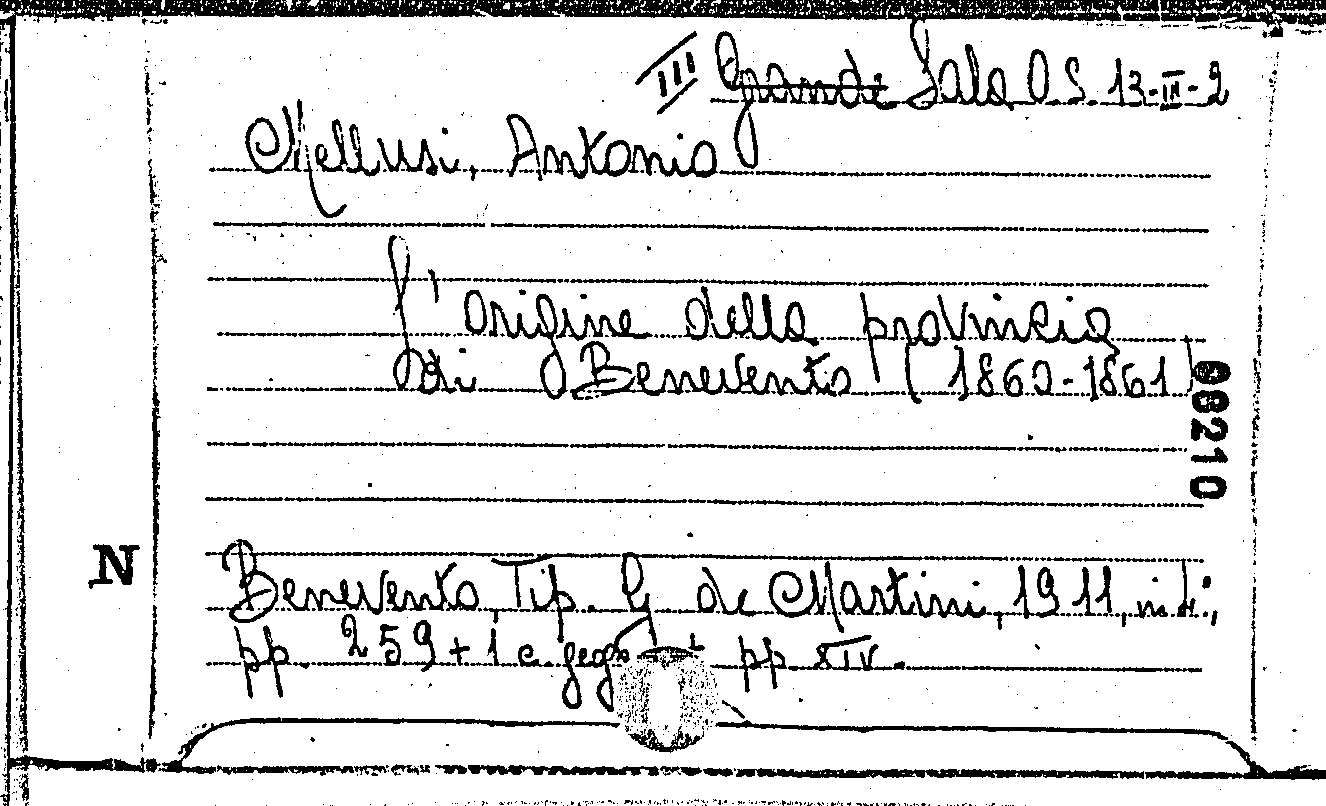 III Grande Sala O.S. 13-III-2
Mellusi, Antonio
L'origine della provincia
di Benevento (1860-1861)
08210
N
Benevento, Tip. G. de Martini, 1911, in
pp. 259 + 1 c. geogr. + pp. XIV.